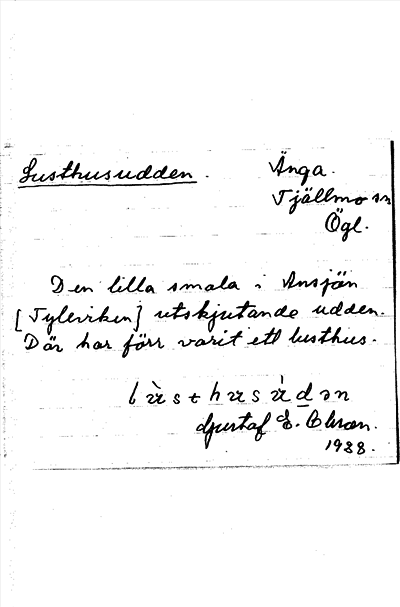 Lusthusudden. Änga.
Tjällmo sn
Ögl.
Den lilla smala i Ansjön
[Tyleviken] utskjutande udden.
Där har förr varit ett lusthus.
Gustaf E. Olson.
1938.